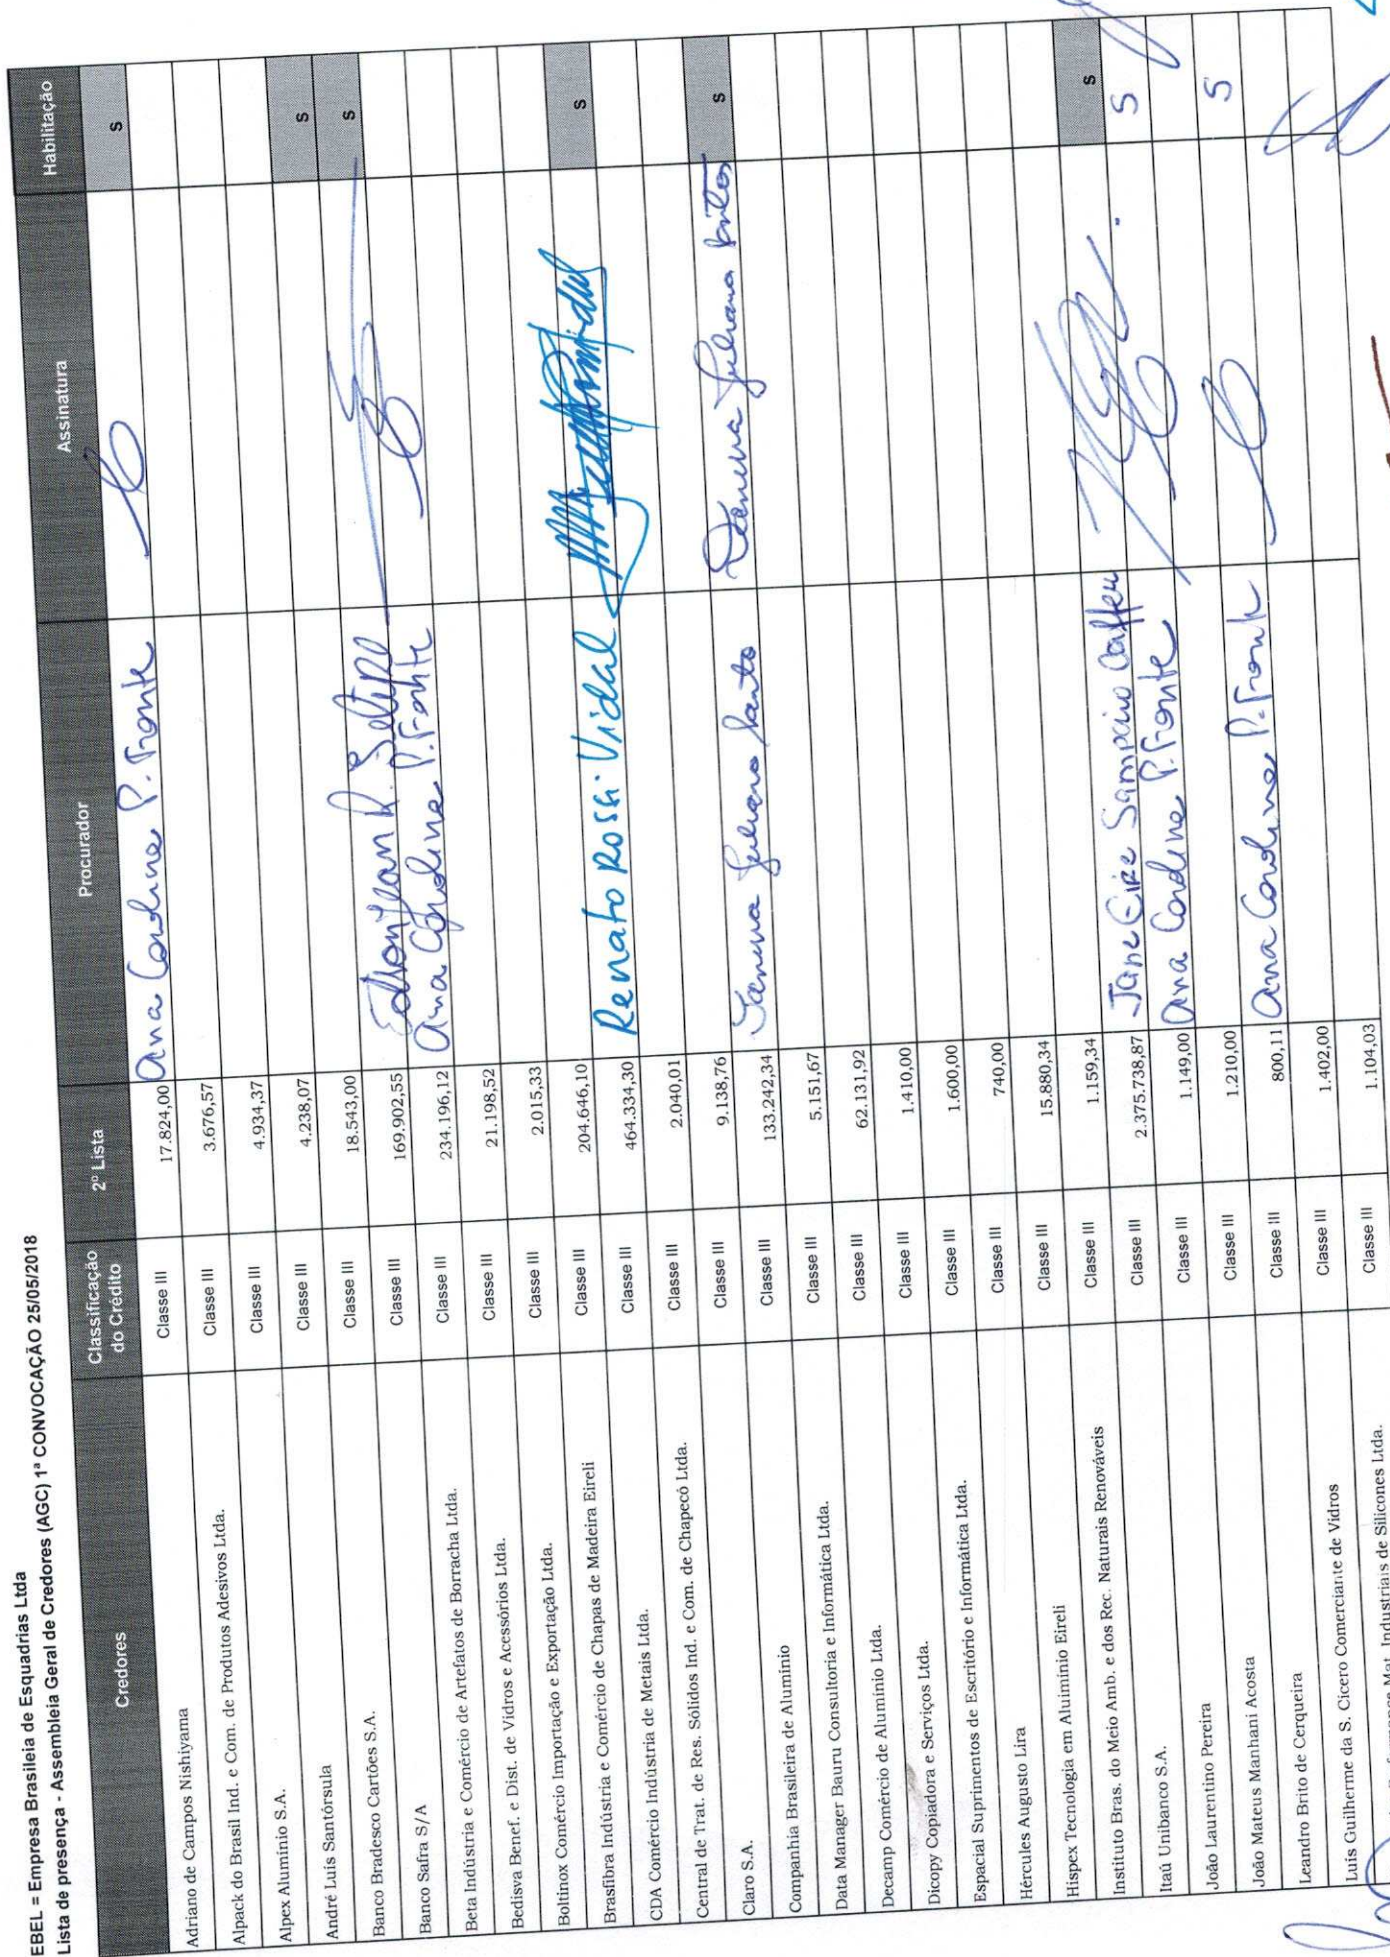 EBEL = Empresa Brasileia de Esquadrias Ltda
Lista de presença - Assembleia Geral de Credores (AGC) 1ª CONVOCAÇÃO 25/05/2018
Credores Classificação do Crédito 2º Lista Procurador Assinatura Habilitação
Adriano de Campos Nishiyama Classe III 17.824,00 Ana Caroline P. Fronte s
Alpack do Brasil Ind. e Com. de Produtos Adesivos Ltda. Classe III 3.676,57
Alpex Aluminio S.A. Classe III 4.934,37
André Luís Santórsula Classe III 4.238,07
Banco Bradesco Cartões S.A. Classe III 18.543,00 s
Banco Safra S/A Classe III 169.902,55 s
Beta Indústria e Comércio de Artefatos de Borracha Ltda. Classe III 234.196,12 Ana Caroline P. Fronte
Bedisva Benef. e Dist. de Vidros e Acessórios Ltda. Classe III 21.198,52
Boltinox Comércio Importação e Exportação Ltda. Classe III 2.015,33
Brasfibra Indústria e Comércio de Chapas de Madeira Eireli Classe III 204.646,10
CDA Comércio Indústria de Metais Ltda. Classe III 464.334,30 Renato Rossi Vidal s
Central de Trat. de Res. Sólidos Ind. e Com. de Chapecó Ltda. Classe III 2.040,01
Claro S.A. Classe III 9.138,76
Companhia Brasileira de Aluminio Classe III 133.242,34 Juliana s
Data Manager Bauru Consultoria e Informática Ltda. Classe III 5.151,67
Decamp Comércio de Aluminio Ltda. Classe III 62.131,92
Dicopy Copiadora e Serviços Ltda. Classe III 1.410,00
Espacial Suprimentos de Escritório e Informática Ltda. Classe III 1.600,00
Hércules Augusto Lira Classe III 740,00
Hispex Tecnologia em Aluminio Eireli Classe III 15.880,34
Instituto Bras. do Meio Amb. e dos Rec. Naturais Renováveis Classe III 1.159,34
Itaú Unibanco S.A. Classe III 2.375.738,87 Jane Eire Sampaio s
João Laurentino Pereira Classe III 1.149,00 Ana Caroline P. Fronte S
João Mateus Manhani Acosta Classe III 1.210,00
Leandro Brito de Cerqueira Classe III 800,11 Ana Caroline P. Fronte S
Luis Guilherme da S. Cicero Comerciante de Vidros Classe III 1.402,00
Mat. Industriais de Silicones Ltda. Classe III 1.104,03